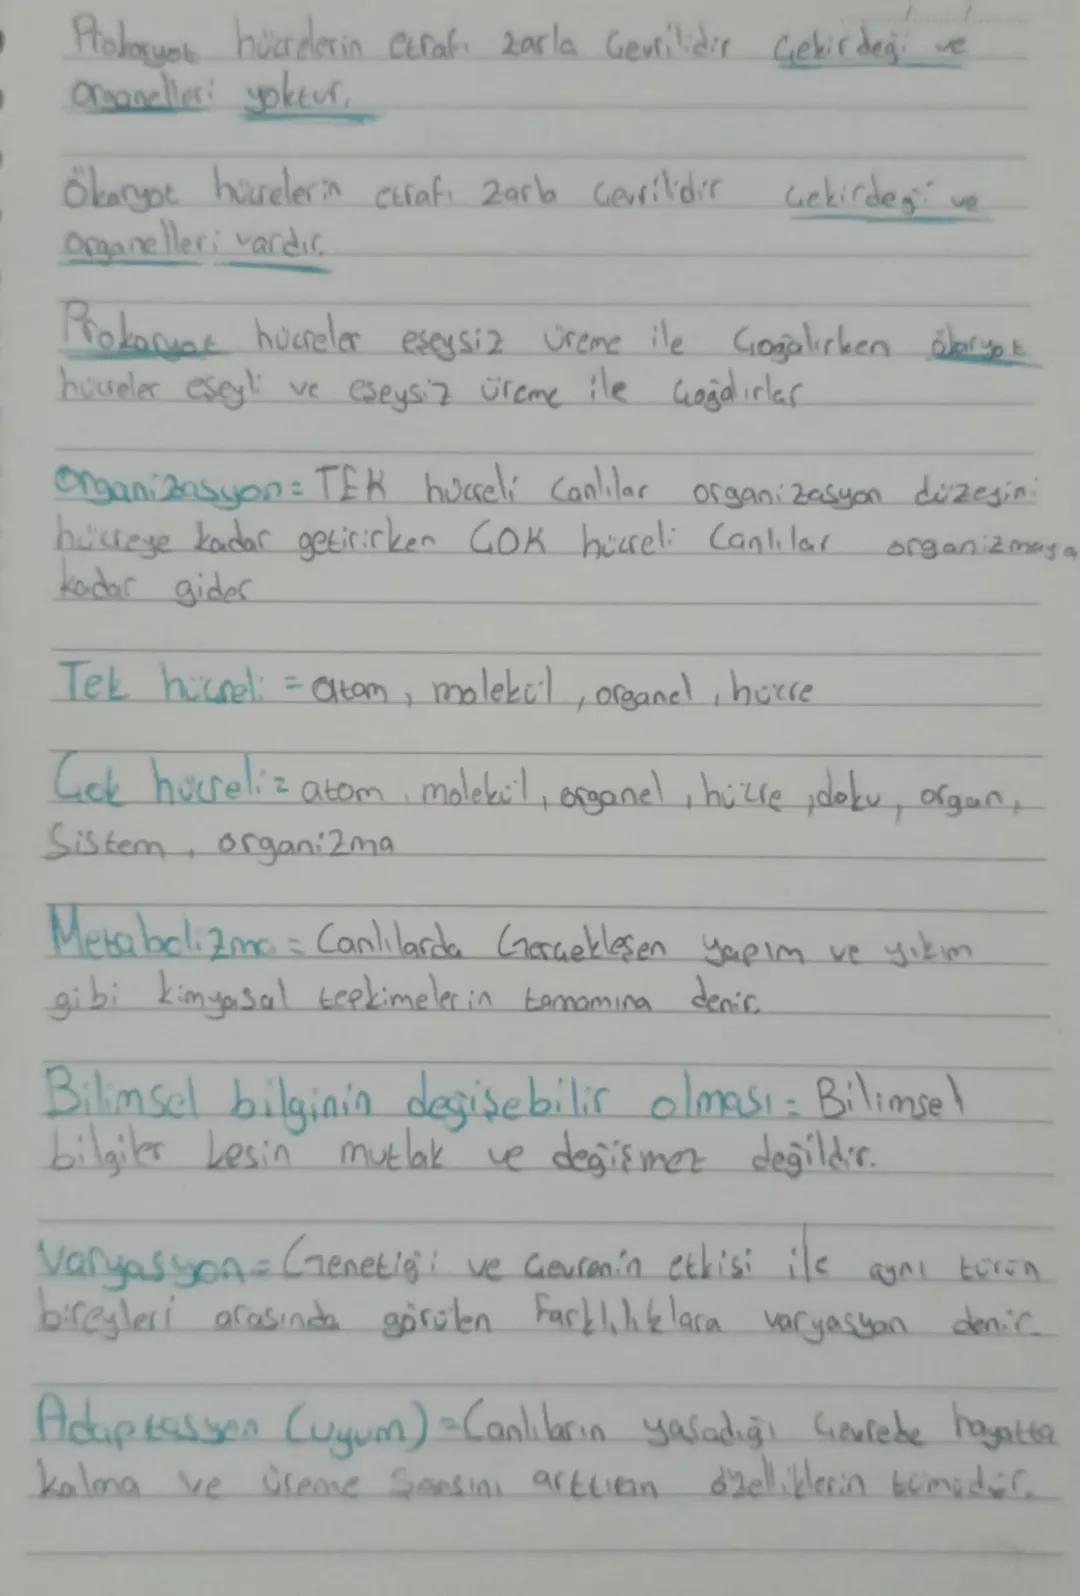 Prokaryot hücrelerin etrafı zarla Çevrilidir Çekirdeği ve
organelleri yoktur.
Ökaryot hücrelerin etrafı zarla Çevrilidir Çekirdeği ve
organelleri vardır.
Prokaryot hücreler eşeysiz üreme ile Çoğalırken ökaryot
hücreler eşeyli ve eşeysiz üreme ile Çoğalırlar
Organizasyon = TEK hücreli Canlılar organizasyon düzeyini
hücreye kadar getirirken ÇOK hücreli Canlılar organizmaya
kadar gider
Tek hücreli = atom, molekül, organel, hücre
Çok hücreli = atom, molekül, organel, hücre, doku, organ,
Sistem, organizma
Metabolizma = Canlılarda Gerçekleşen yapım ve yıkım
gibi kimyasal tepkimelerin tamamına denir.
Bilimsel bilginin değişebilir olması = Bilimsel
bilgiler kesin mutlak ve değişmez değildir.
Varyasyon = Genetiği ve Çevrenin etkisi ile aynı türün
bireyleri arasında görülen Farklılıklara varyasyon denir.
Adaptasyon (uyum) = Canlıların yaşadığı Çevrede hayatta
kalma ve üreme Şansını arttıran özelliklerin tümüdür.